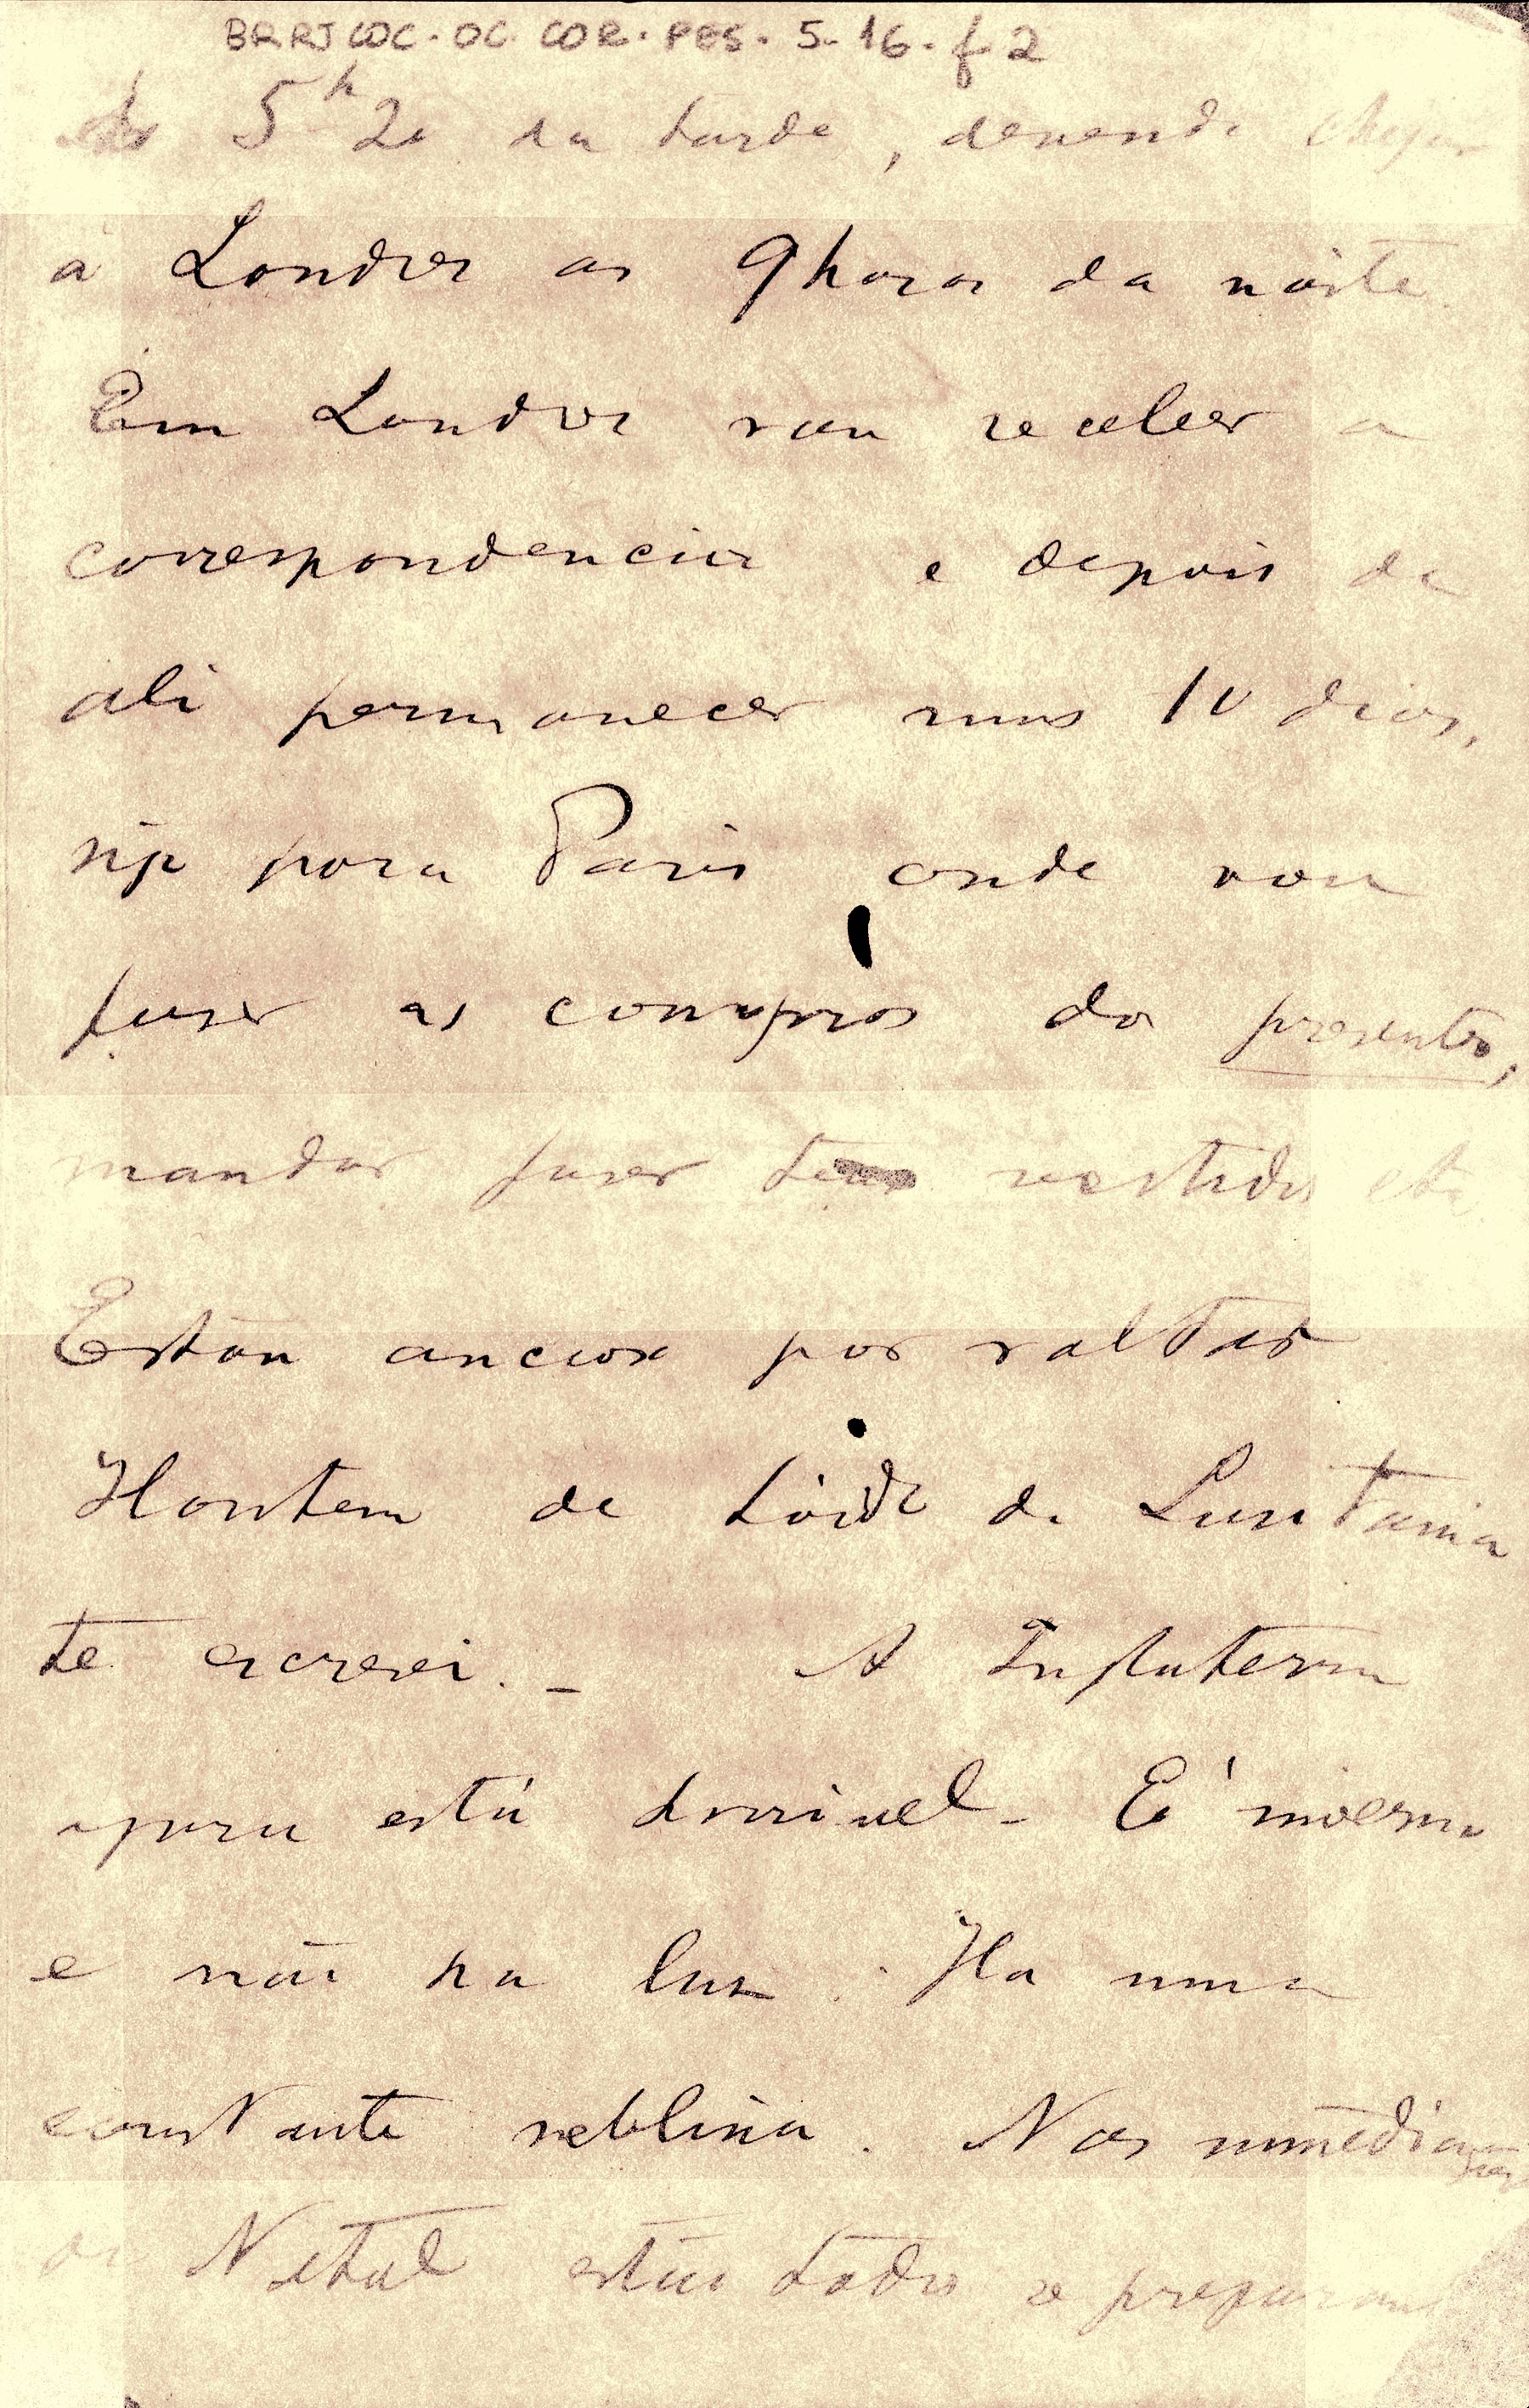 BR RJ COC. OC. COR. PES. 5. 16. f 2
As 5h 20 da tarde, devendo chegar
a Londres as 9 horas da noite.
Em Londres vou receber a
correspondencia e depois de
ali permanecer uns 10 dias,
sijo para Paris onde vou
fazer as compras dos presentes,
mandar fazer teus vestidos etc
Estou ancioso por voltar
Hontem de bordo do Lusitania
te escrevi. _ A Inglaterra
agora está horrivel - É inverno
e não ha luz. Ha uma
constante neblina. Nas immediações
do Natal estão todos se preparando